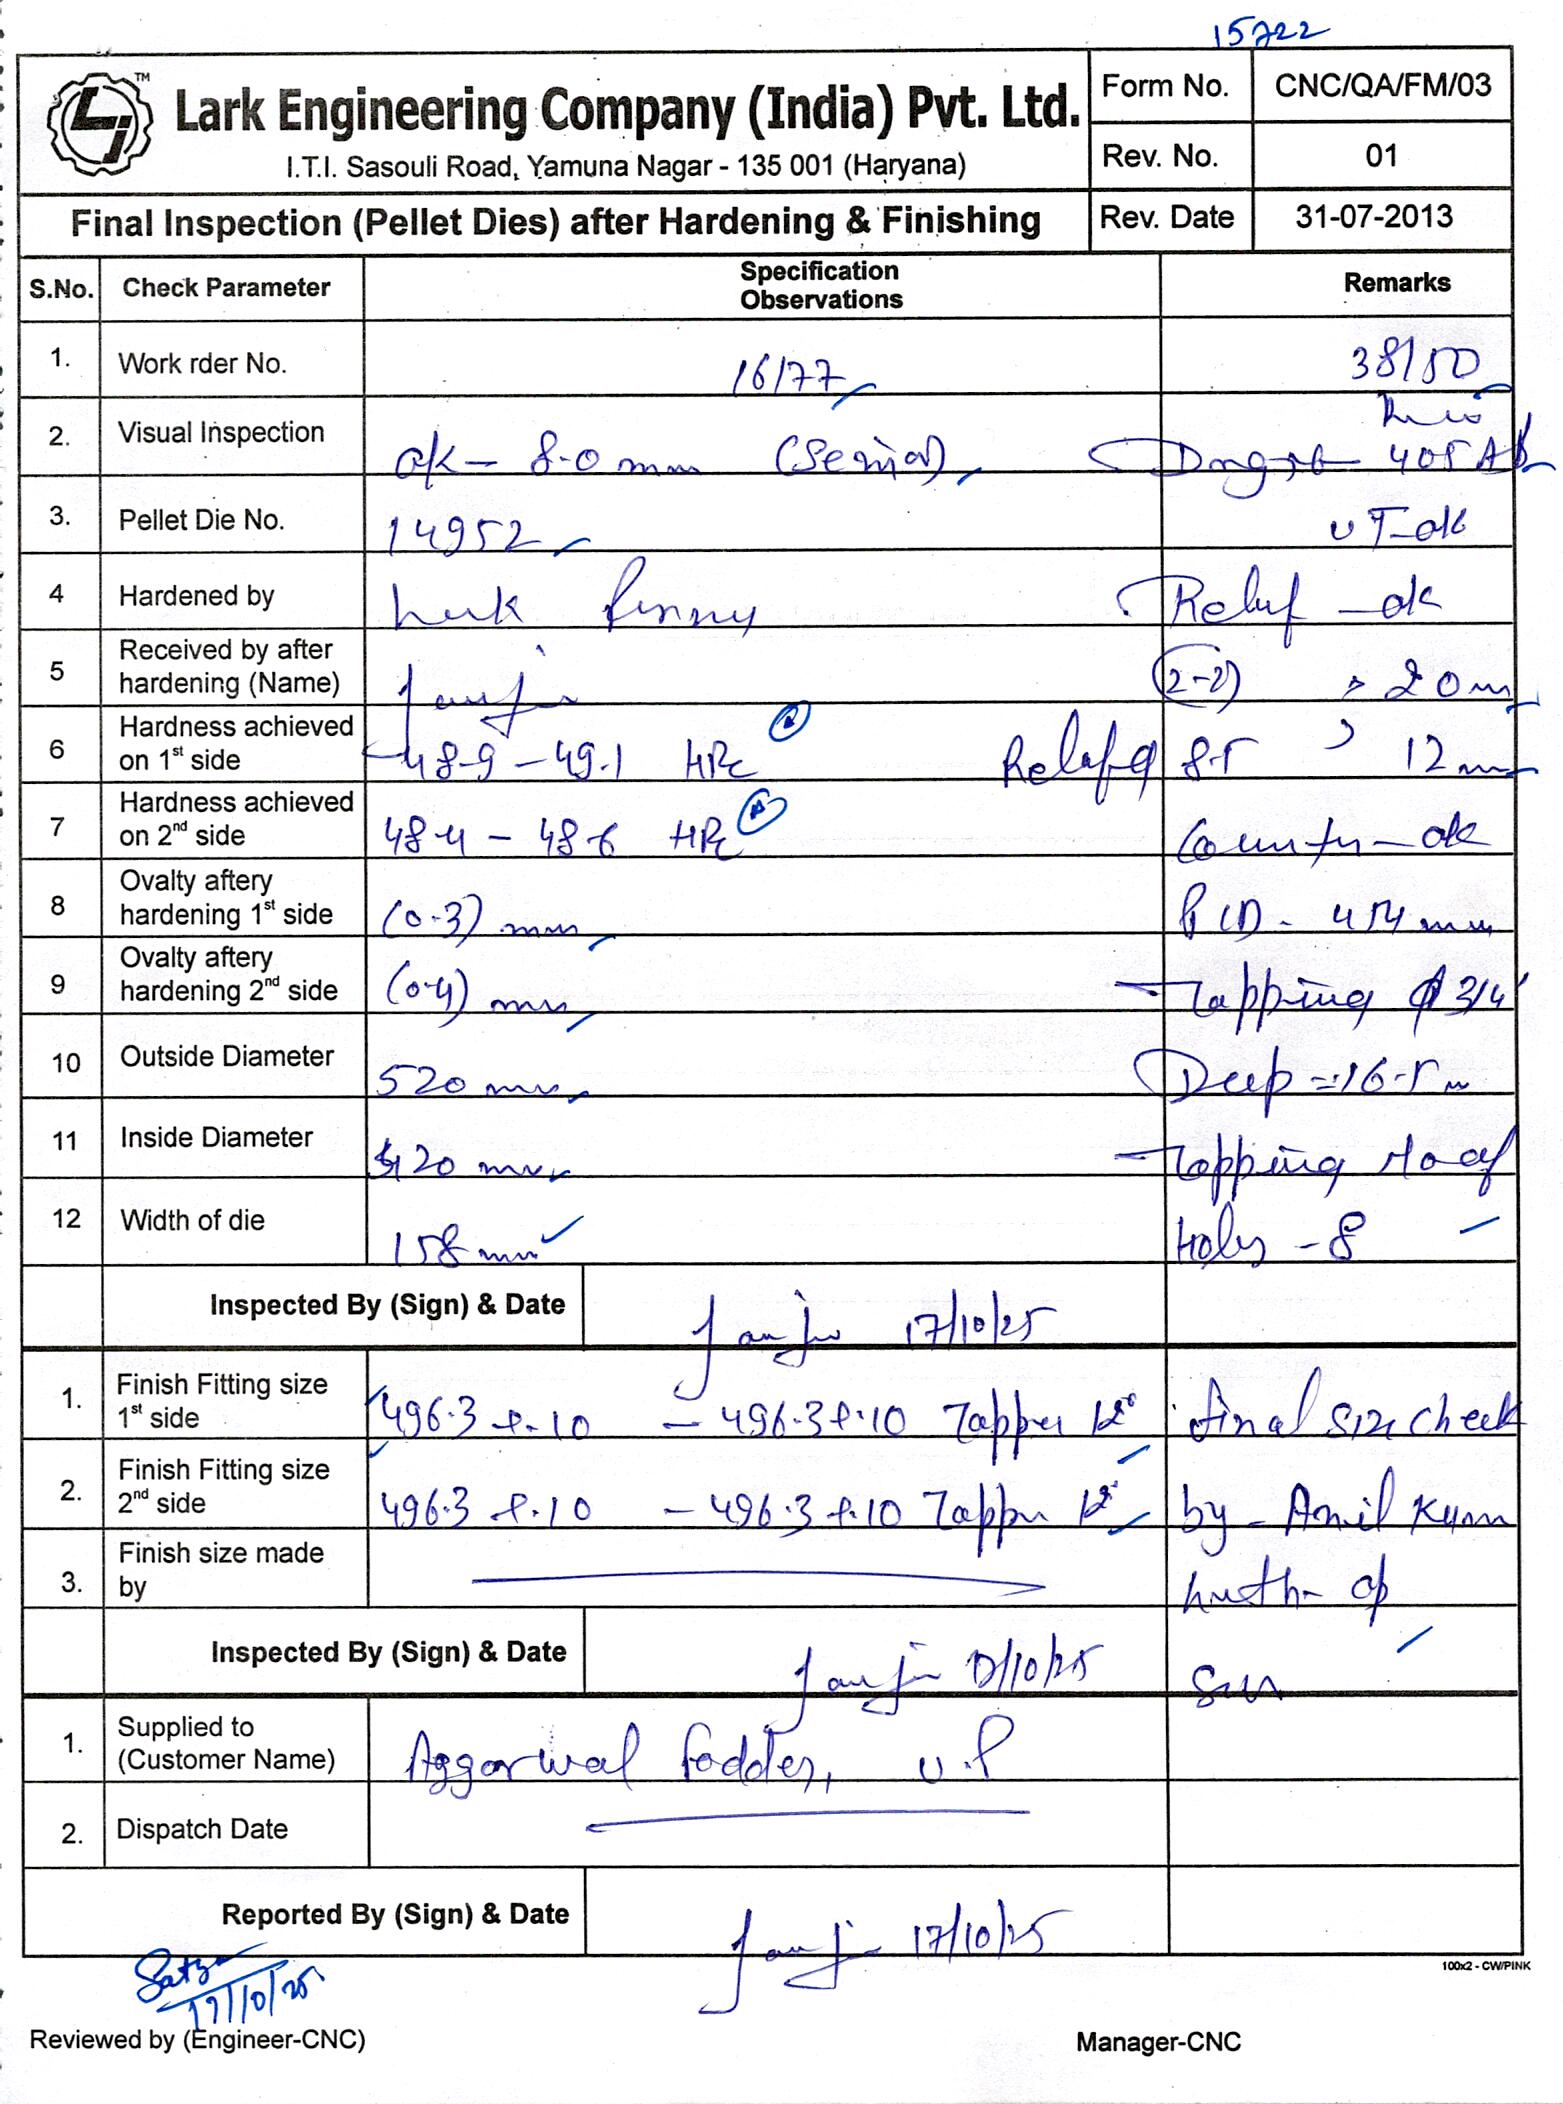 15722
TM
Lark Engineering Company (India) Pvt. Ltd.
I.T.I. Sasouli Road, Yamuna Nagar - 135 001 (Haryana)
Form No. CNC/QA/FM/03
Rev. No. 01
Final Inspection (Pellet Dies) after Hardening & Finishing
Rev. Date 31-07-2013
S.No. Check Parameter Specification Observations Remarks
1. Work rder No. 16/77 38/50
2. Visual Inspection ok - 8.0 mm 405
3. Pellet Die No. 14952 UT-ok
4 Hardened by Relief - ok
5 Received by after hardening (Name) (2-2) 20 mm
6 Hardness achieved on 1st side 48.9 - 49.1 HRc Relief φ 8.5 12 mm
7 Hardness achieved on 2nd side 48.4 - 48.6 HRc Counter - ok
8 Ovalty aftery hardening 1st side (0.3) mm PCD - 454 mm
9 Ovalty aftery hardening 2nd side (0.4) mm Tapping φ 3/4"
10 Outside Diameter 520 mm Deep = 16.5 m
11 Inside Diameter 420 mm Tapping No of
12 Width of die 158 mm Holes - 8
Inspected By (Sign) & Date 17/10/25
1. Finish Fitting size 1st side 496.3 +.10 - 496.3 +.10 Tapper 12° final size check
2. Finish Fitting size 2nd side 496.3 +.10 - 496.3 +.10 Tapper 12° by - Anil Kumar
3. Finish size made by op
Inspected By (Sign) & Date /10/25
1. Supplied to (Customer Name) Aggarwal Fodder, U.P
2. Dispatch Date
Reported By (Sign) & Date 17/10/25
100x2 - CW/PINK
17/10/25
Reviewed by (Engineer-CNC) Manager-CNC